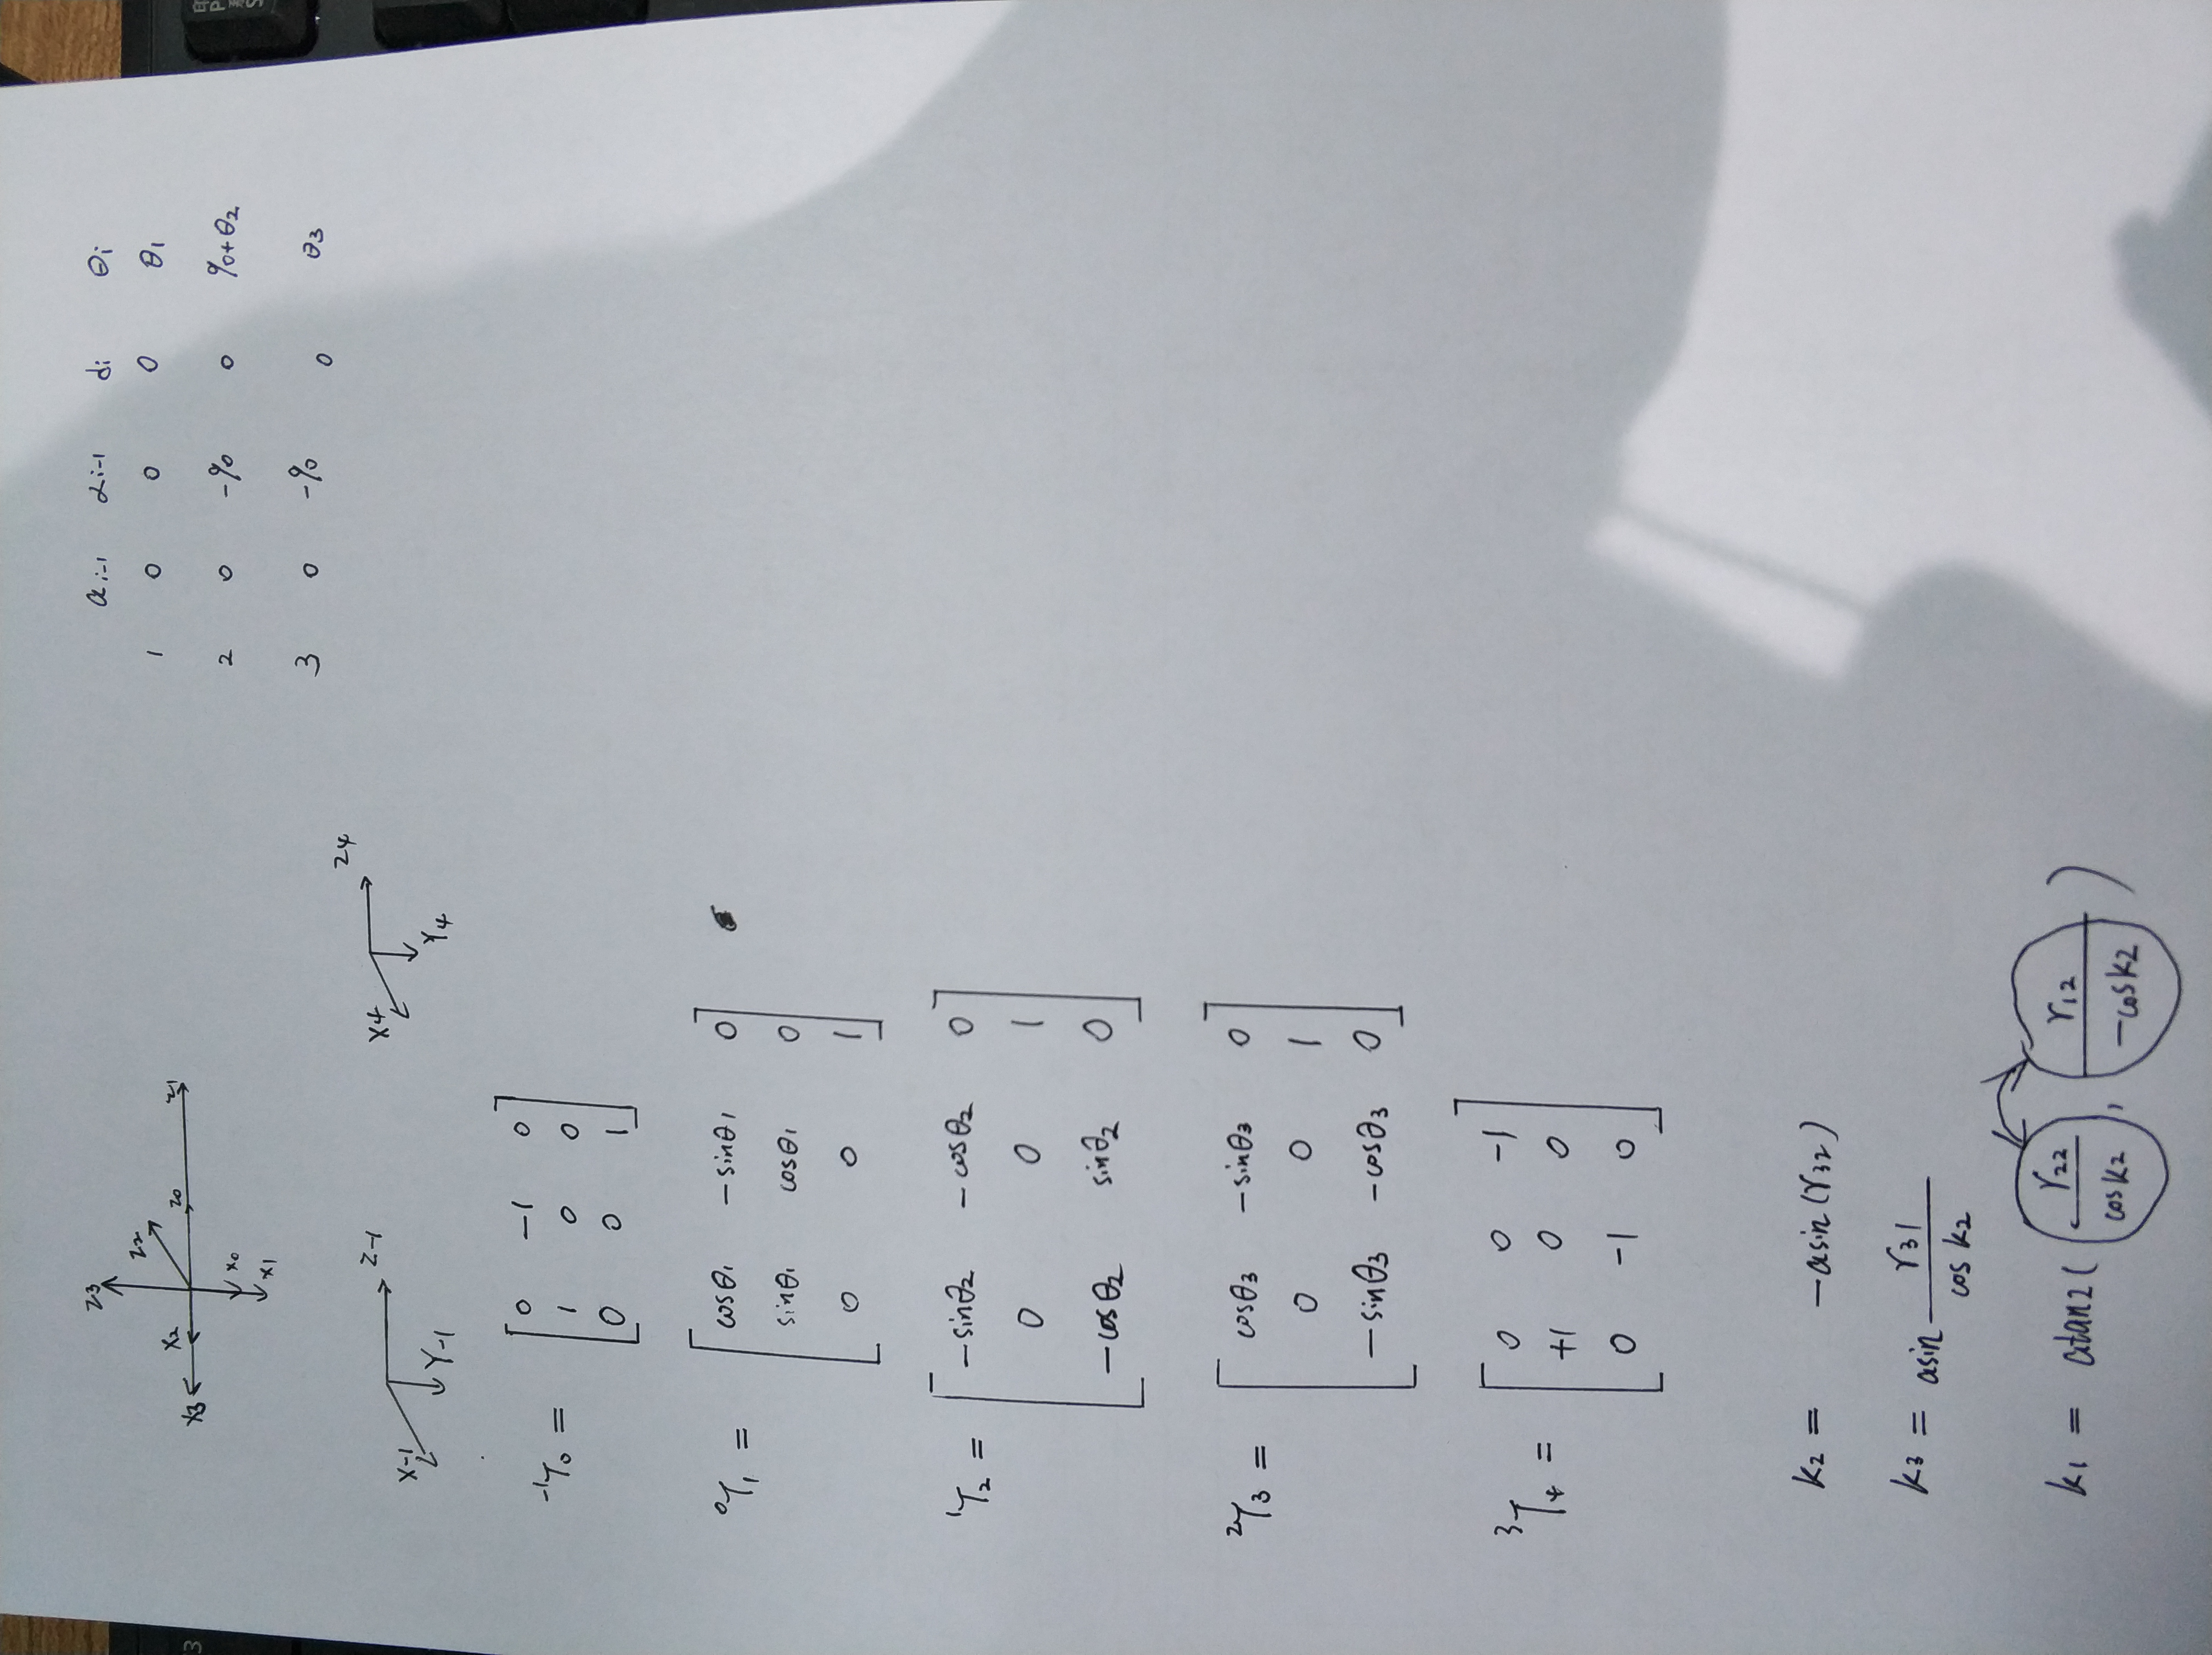 Z3
Z2
X2
X3
Z0
Z1
X0
X1
a i-1 α i-1 di θi
1 0 0 0 θ1
2 0 -90 0 90+θ2
3 0 -90 0 θ3
Z-1
X-1
Y-1
Z4
X4
Y4
-1T0 =
0 -1 0
1 0 0
0 0 1
0T1 =
cosθ1 -sinθ1 0
sinθ1 cosθ1 0
0 0 1
1T2 =
-sinθ2 -cosθ2 0
0 0 1
-cosθ2 sinθ2 0
2T3 =
cosθ3 -sinθ3 0
0 0 1
-sinθ3 -cosθ3 0
3T4 =
0 0 -1
+1 0 0
0 -1 0
k2 = -asin(r32)
k3 = asin r31 / cos k2
k1 = atan2( r22 / cosk2 , r12 / -cosk2 )